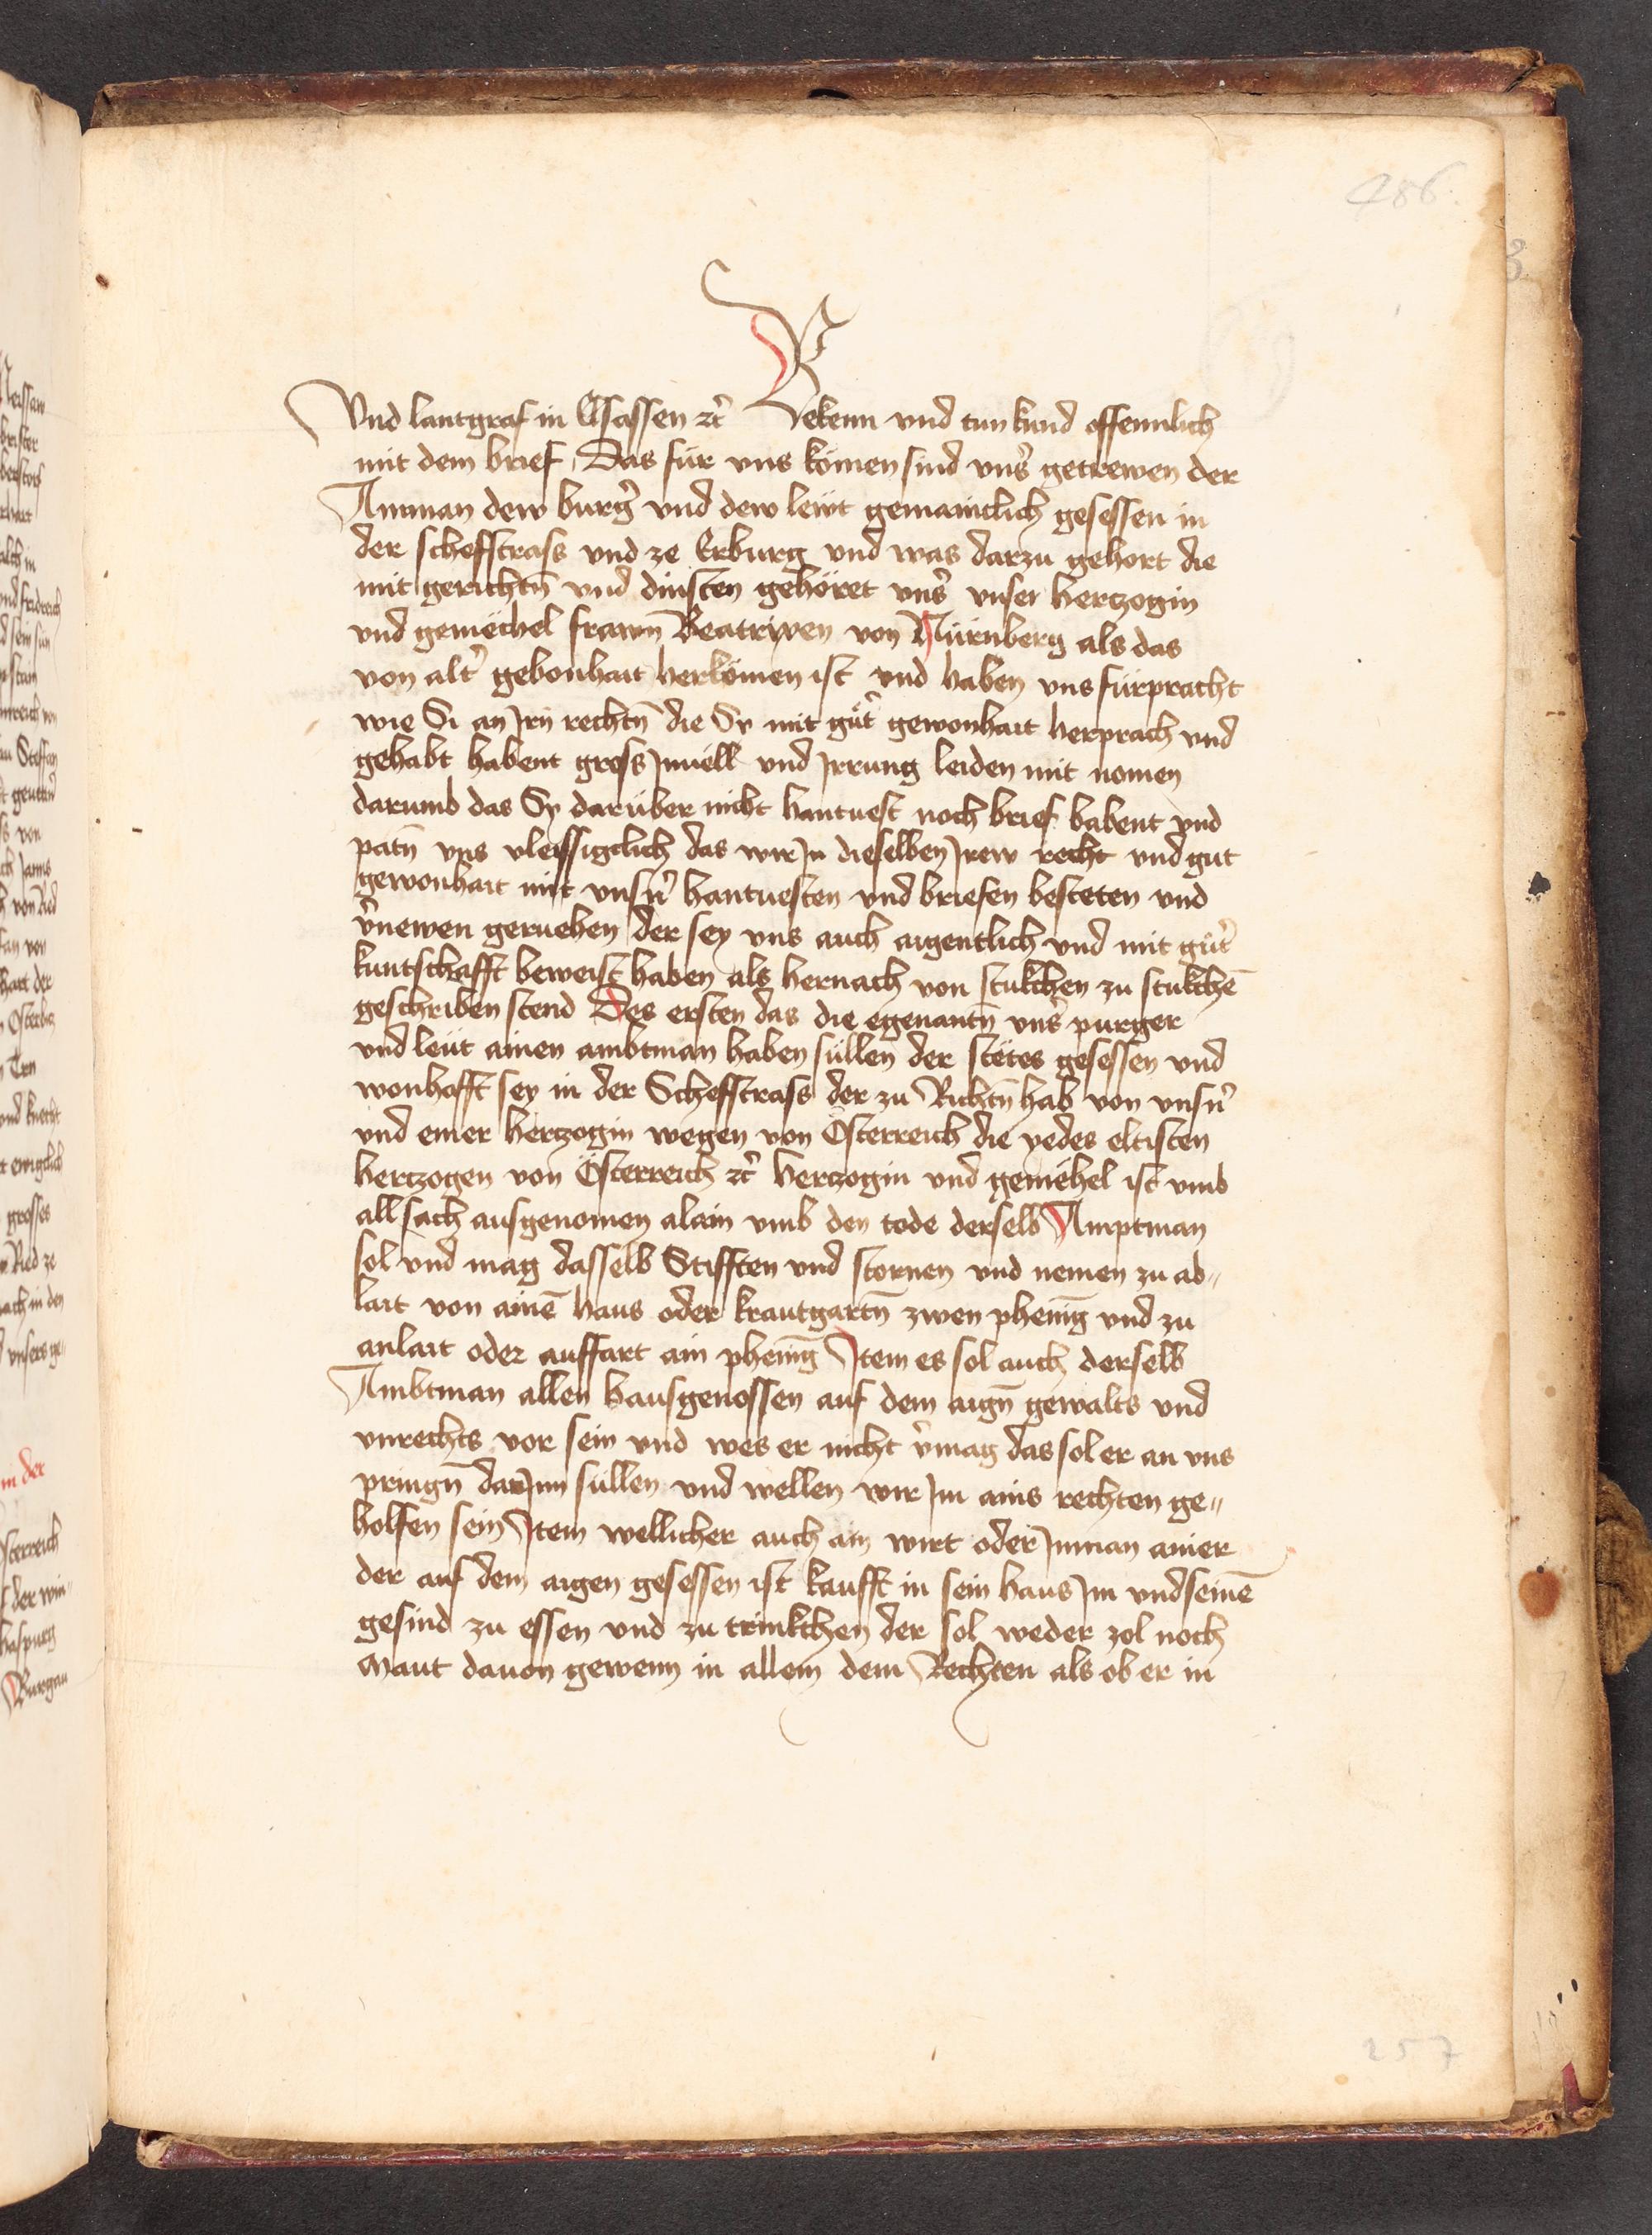 486.
Vnd lantgraf in Elsassen ꝛc̄ Bekenn vnd tun kund offennlich
mit dem brief, Das für vns komen sind vnsˀ getrewen der
Amman dew burgˀ vnd dew lewt gemainclich gesessen in
der scheffstrass vnd ze Erburg vnd was darzu gehort die
mit gerichtn̄ vnd dinsten gehöret vnsˀ vnser hertzogin
vnd gemëchel frawn̄ Beatrixen von Nürnberg als das
von altˀ gebonhait herkömen ist vnd haben vns fürpracht
wie Si an Jrn̄ rechtn̄ die Sy mit gůtˀ gewonhait herprach vnd
gehabt habent gross Jnuëll vnd Jrrung leiden mit nomen
darumb das Sy darüber nicht hantuest noch brief habent vnd
patn̄ vns vleissigclich das wir Jn dieselben Jrew recht vnd gut
gewonhait mit vnsn̄ˀ hantuesten vnd briefen besteten vnd
vˀnewen geruehen der sey vns auch aigentlich vnd mit gůtˀ
kuntschafft beweist haben als hernach von stukchen zu stukchē
geschriben stend Des ersten das die egenantn̄ vnsˀ purger
vnd leüt ainen ambtman haben süllen der stëtes gesessen vnd
wonhafft sey in der Scheffstrass der zu Richtn̄ hab von vnsn̄ˀ
vnd einer hertzogin wegen von Österreich die yedes eltisten
hertzogen von Österreich ꝛc̄ hertzogin vnd gemëhel ist vmb
all sach ausgenomen alain vmb den tode derselb Amptman
sol vnd mag dasselb Stifften vnd störnen vnd nemen zu ab„
lait von ainē haus oder krautgartn̄ zwen pheninḡ vnd zu
anlait oder auffart ain pheninḡ Item es sol auch derselb
Ambtman allen hausgenossen auf dem aign̄ gewalts vnd
vnrechts vor sein vnd wes er nicht vˀmag das sol er an vns
pringn̄ dar Jnn süllen vnd wellen wir Jm ains rechten ge„
holfen sein Item wellicher auch ain wirt oder Jnman ainer
der auf dem aigen gesessen ist kaufft in sein haus Jm vnd seinē
gesind zu essen vnd zu trinkchen der sol weder zol noch
Maut dauon gewenn in allem dem Rechten als ob er in
257